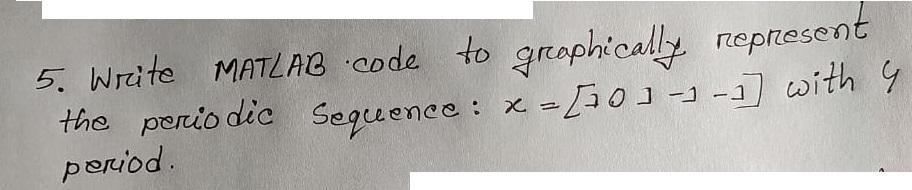 5. Write MATLAB code to graphically represent
the periodic Sequence: x = [1 0 1 -1 -1] with 4
period.